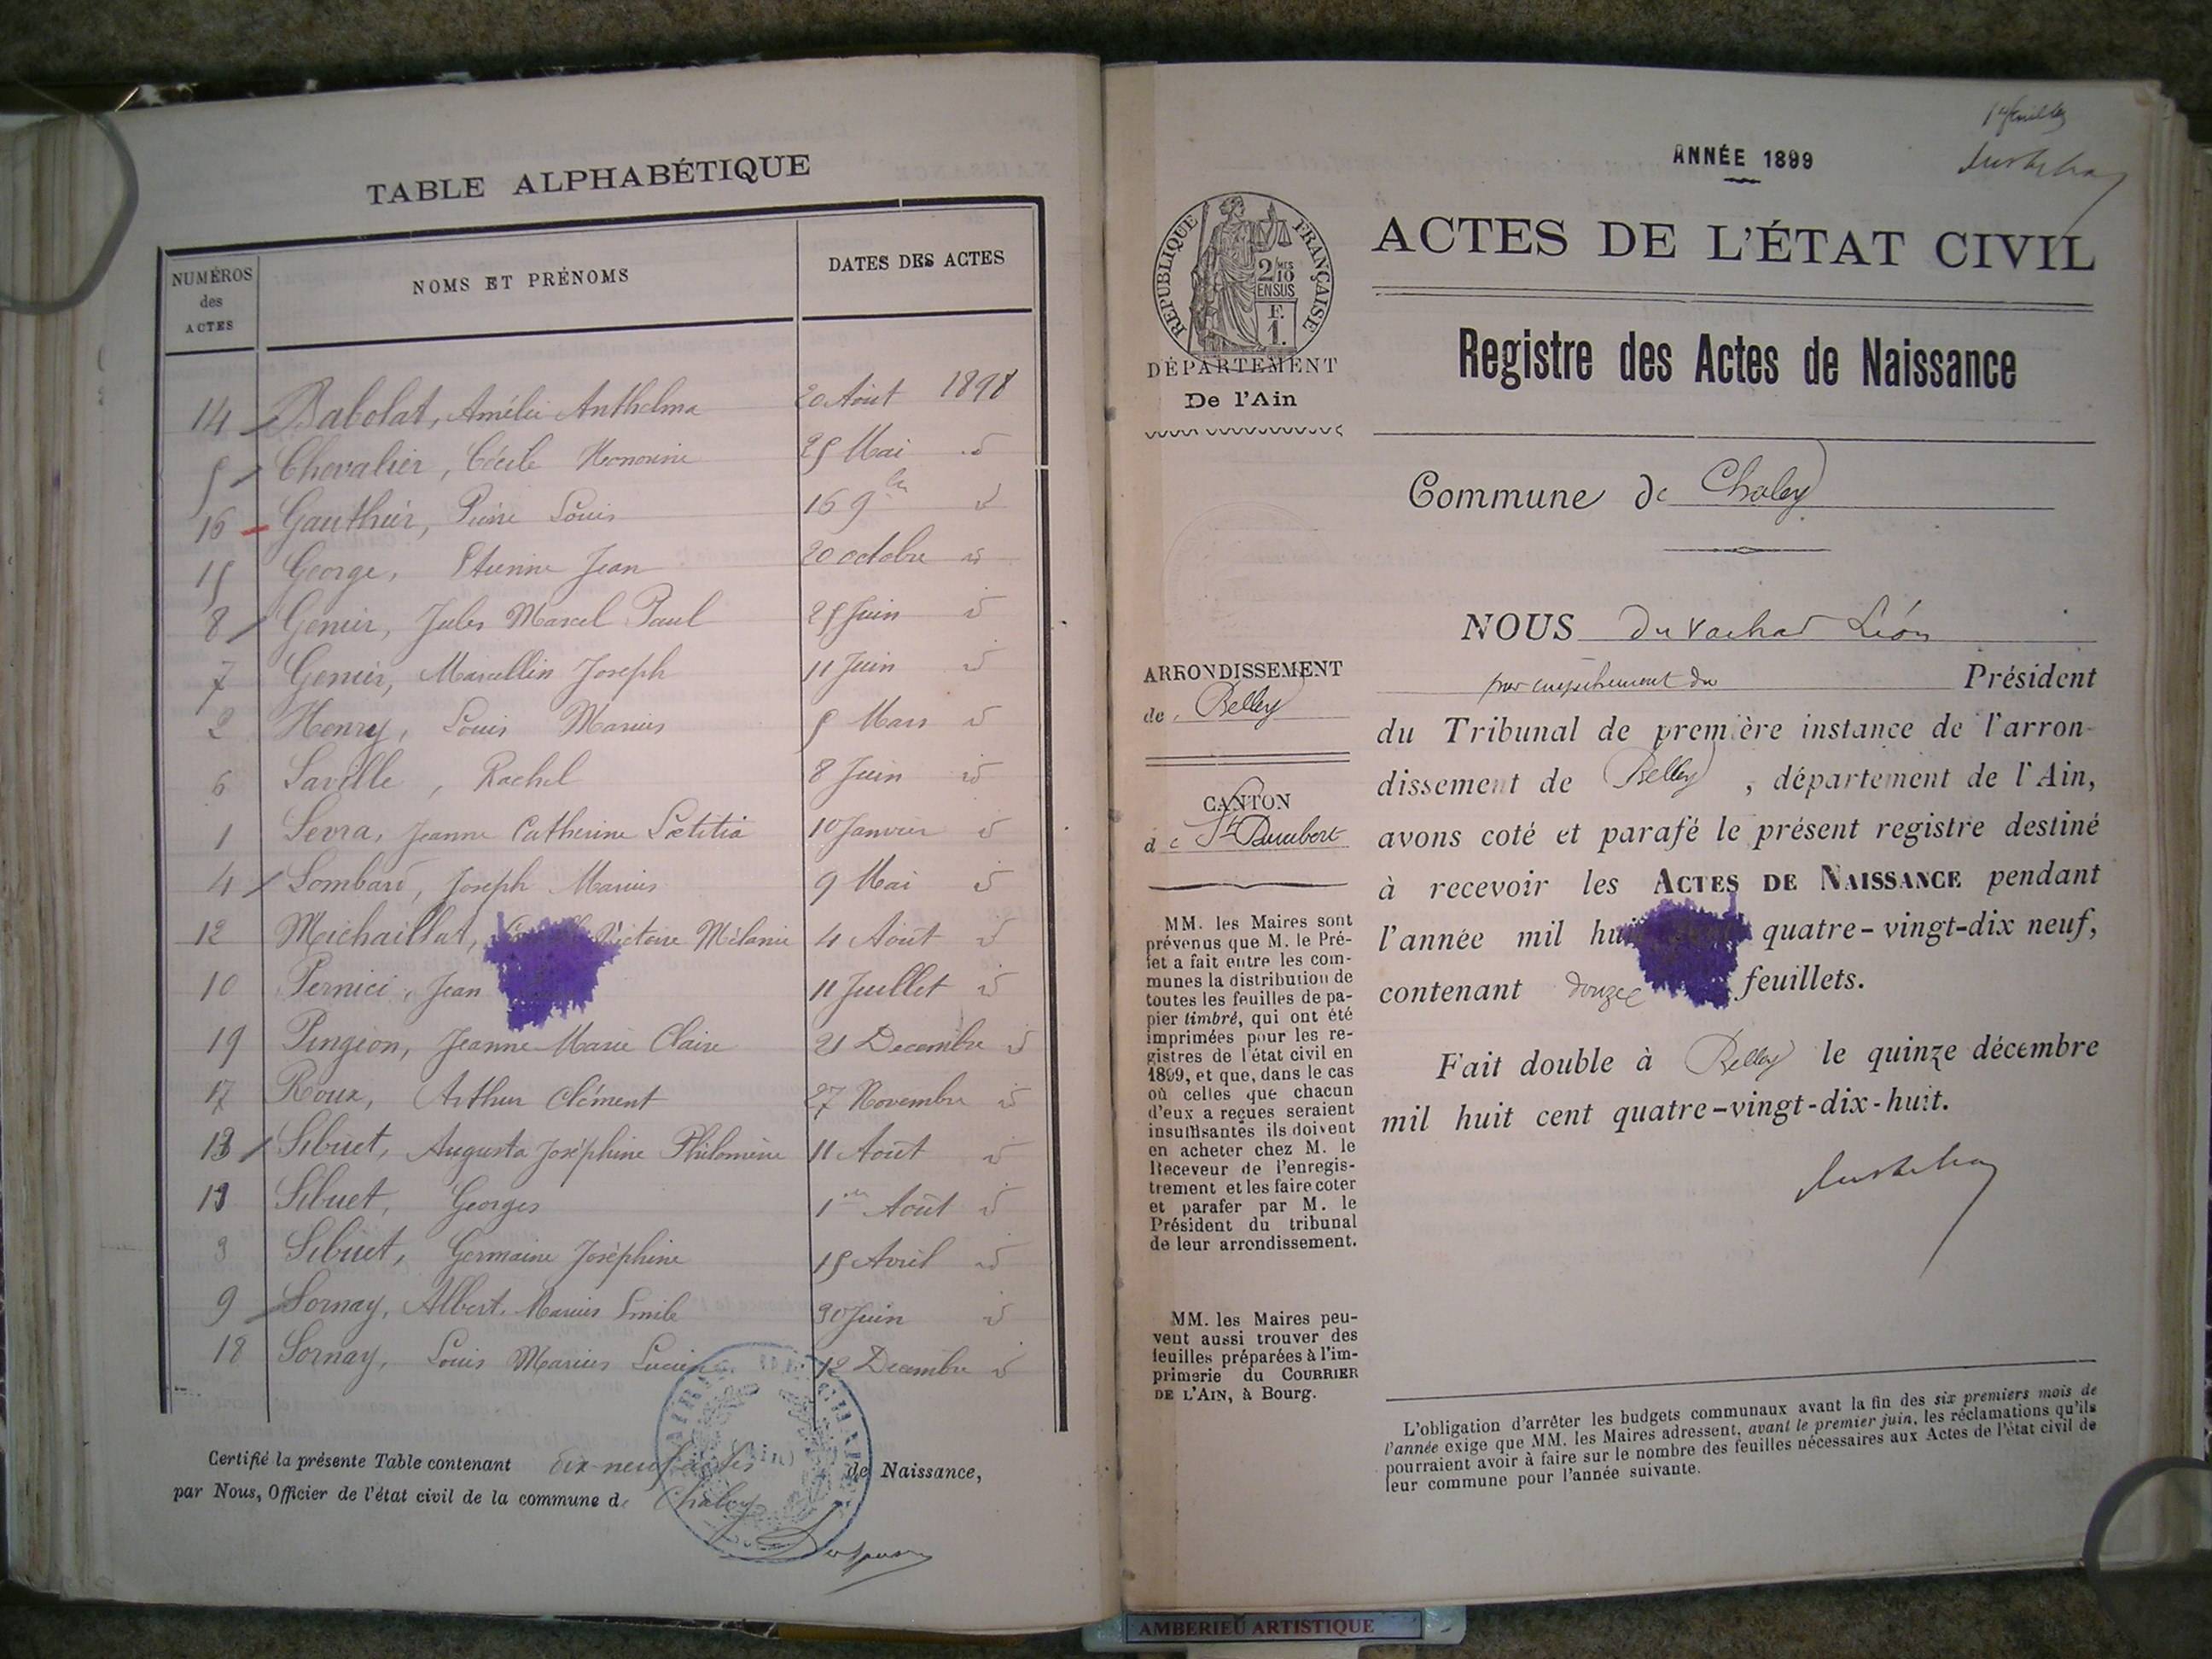 TABLE ALPHABÉTIQUE
NUMÉROS des ACTES
NOMS ET PRÉNOMS
DATES DES ACTES
14 Babolat, Amélie Anthelma 20 Août 1898
5 Chevalier, Cécile Honorine 25 Mai d
16 Gauthier, Pierre Louis 16 9bre d
15 George, Etienne Jean 20 octobre d
8 Genier, Jules Marcel Paul 25 Juin d
7 Genier, Marcellin Joseph 11 Juin d
2 Henry, Louis Marius 5 Mars d
6 Laville, Rachel 8 Juin d
1 Levra, Jeanne Catherine Lœtitia 10 Janvier d
4 Lombard, Joseph Marius 9 Mai d
12 Michaillat, Victoire Mélanie 4 Août d
10 Pernici, Jean 11 Juillet d
19 Pingeon, Jeanne Marie Claire 21 Decembre d
17 Roux, Arthur Clément 27 Novembre d
13 Sibuet, Augusta Joséphine Philomène 11 Août d
Sibuet, Georges 1er Août d
3 Sibuet, Germaine Joséphine 15 Avril d
9 Sornay, Albert Marius Emile 30 Juin d
18 Sornay, Louis Marius Lucien 12 Decembre d
Certifié la présente Table contenant dix-neuf actes de Naissance,
par Nous, Officier de l'état civil de la commune de Chaley
1er feuillet
ANNÉE 1899
RÉPUBLIQUE FRANÇAISE
2/10 MES
EN SUS
F.
1.
DÉPARTEMENT
De l'Ain
ACTES DE L'ÉTAT CIVIL
Registre des Actes de Naissance
Commune de Chaley
ARRONDISSEMENT
de Belley
CANTON
de St Rambert
MM. les Maires sont
prévenus que M. le Pré-
fet a fait entre les com-
munes la distribution de
toutes les feuilles de pa-
pier timbré, qui ont été
imprimées pour les re-
gistres de l'état civil en
1899, et que, dans le cas
où celles que chacun
d'eux a reçues seraient
insuffisantes ils doivent
en acheter chez M. le
Receveur de l'enregis-
trement et les faire coter
et parafer par M. le
Président du tribunal
de leur arrondissement.
MM. les Maires peu-
vent aussi trouver des
feuilles préparées à l'im-
primerie du COURRIER
DE L'AIN, à Bourg.
NOUS Duvachat Léon
par empêchement du Président
du Tribunal de première instance de l'arron-
dissement de Belley, département de l'Ain,
avons coté et parafé le présent registre destiné
à recevoir les ACTES DE NAISSANCE pendant
l'année mil huit cent quatre-vingt-dix neuf,
contenant douze feuillets.
Fait double à Belley le quinze décembre
mil huit cent quatre-vingt-dix-huit.
L'obligation d'arrêter les budgets communaux avant la fin des six premiers mois de
l'année exige que MM. les Maires adressent, avant le premier juin, les réclamations qu'ils
pourraient avoir à faire sur le nombre des feuilles nécessaires aux Actes de l'état civil de
leur commune pour l'année suivante.
AMBERIEU ARTISTIQUE